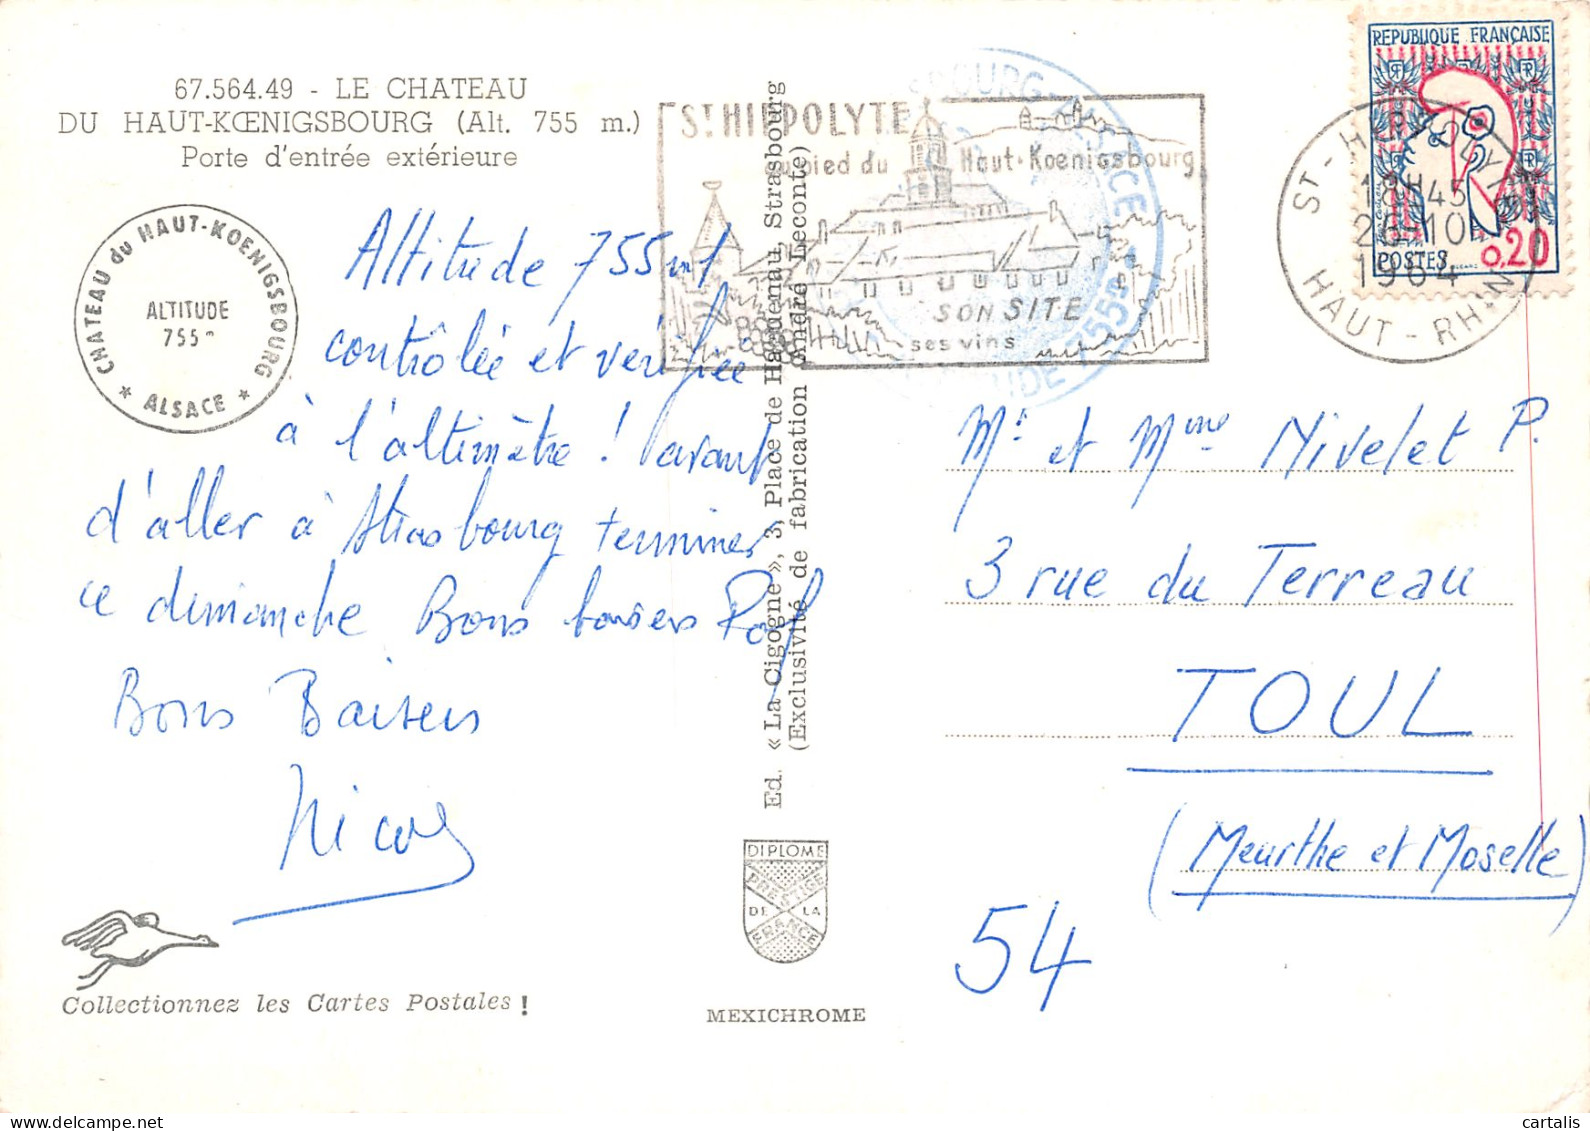 67.564.49 - LE CHATEAU
DU HAUT-KŒNIGSBOURG (Alt. 755 m.)
Porte d'entrée extérieure
CHATEAU du HAUT-KOENIGSBOURG
ALTITUDE
755 m
* ALSACE *
Altitude 755 m
contrôlée et vérifiée
à l'altimètre ! avant
d'aller à Strasbourg terminer
ce dimanche Bons baisers
Bons Baisers
Collectionnez les Cartes Postales !
Ed. « La Cigogne », 3, Place de Haguenau, Strasbourg
(Exclusivité de fabrication André Leconte)
DIPLOME
PRESTIGE
DE LA
FRANCE
MEXICHROME
ST HIPPOLYTE
au pied du Haut-Koenigsbourg
SON SITE
ses vins
ALTITUDE 755
REPUBLIQUE FRANÇAISE
POSTES 0,20
ST-HIPPOLYTE
18H45
26-10
1964
HAUT-RHIN
Mr et Mme Nivelet P.
3 rue du Terreau
TOUL
(Meurthe et Moselle)
54
© cartalis